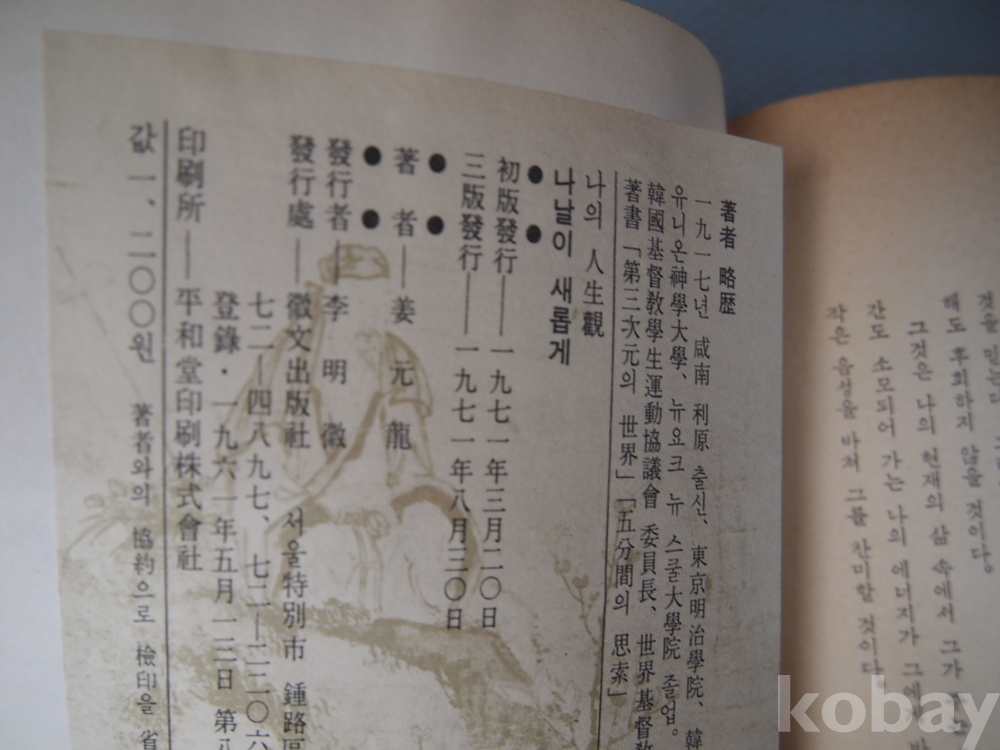 著者 略歴
一九一七년 咸南 利原 출신、東京明治學院、韓
유니온神學大學、뉴요크 뉴 스쿨大學院 졸업。
韓國基督敎學生運動協議會 委員長、世界基督敎
著書「第三次元의 世界」「五分間의 思索」
나의 人生觀
나날이 새롭게
●●
初版發行──一九七一年三月二〇日
三版發行──一九七一年八月三〇日
●●
著 者──姜 元 龍
●●
發行者──李 明 徽
發行處──徽文出版社 서울特別市 鍾路區
七二─四八九七、七二─二二〇六
登錄・一九六一年五月一二日 第八
印刷所──平和堂印刷株式會社
값 一、二〇〇원 著者와의 協約으로 檢印을 省
것을 믿는다
해도 후회하지 않을 것이다
그것은 나의 현재의 삶 속에서 그가
간도 소모되어 가는 나의 에너지가 그에게
작은 음성을 바쳐 그를 찬미할 것이다
kobay